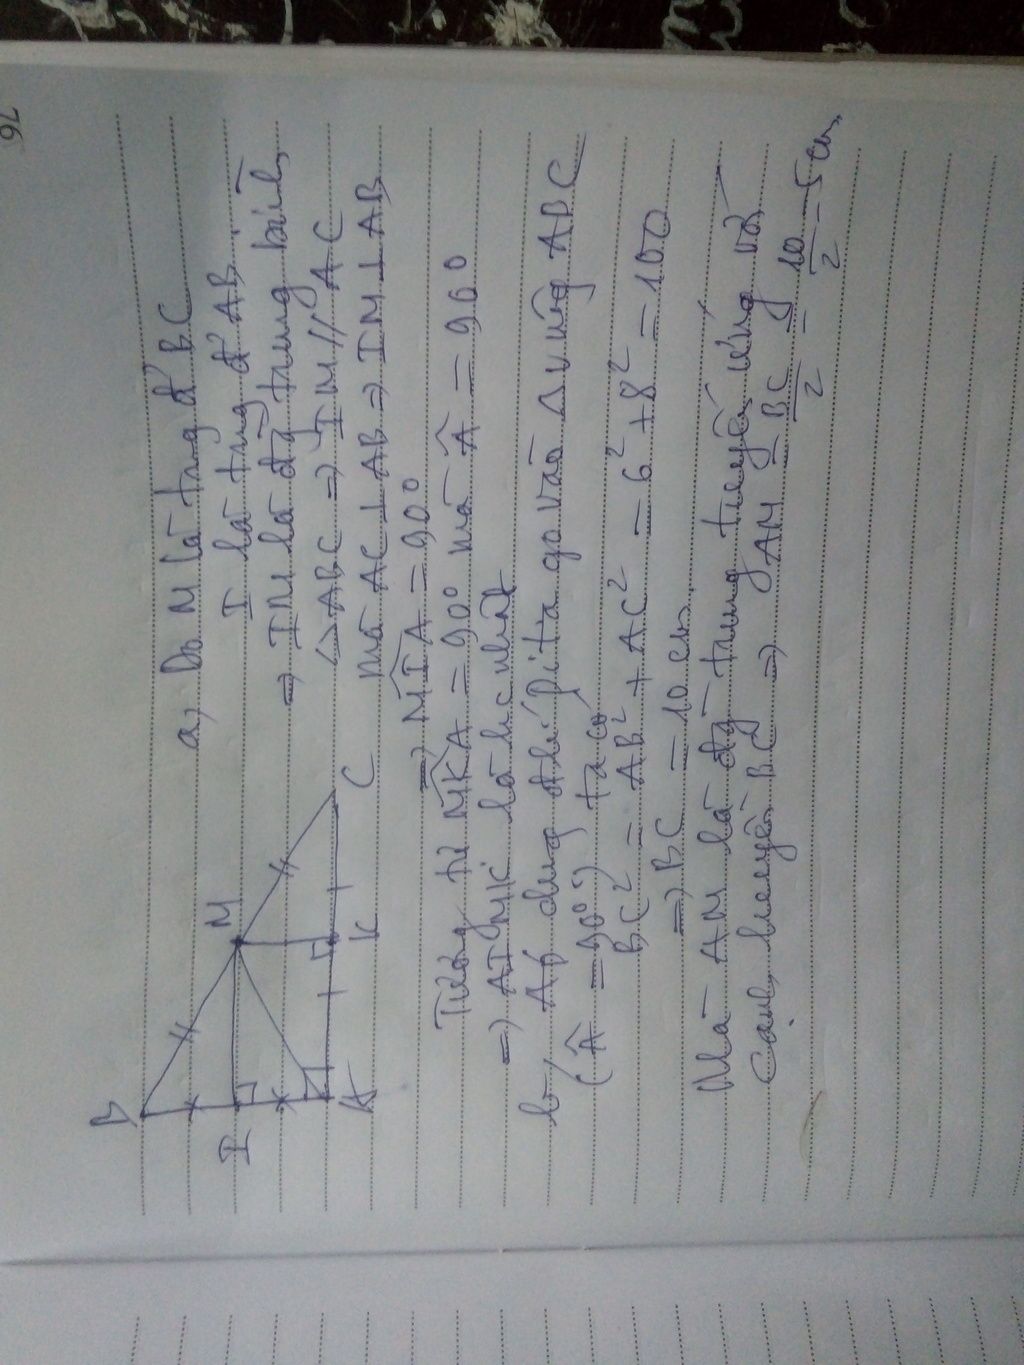 76
a, Do M là trug đ' BC
I là trug đ' AB
=> IM là đg trung bình
ΔABC => IM // AC
mà AC ⊥ AB => IM ⊥ AB
=> MIA = 90°
Tương tự MKA = 90° mà Â = 90°
=> AIMK là hc nhật
b/ Áp dụng đlí pita go vào Δ vuông ABC
(Â = 90°) ta có
BC² = AB² + AC² = 6² + 8² = 100
=> BC = 10 cm
Mà AM là đg trung tuyến ứng vs
cạnh huyền BC => AM = BC/2 = 10/2 = 5 cm
B
I
A
M
K
C